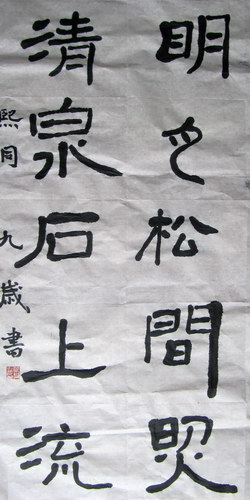 明月松間照
清泉石上流
熙同九歲書